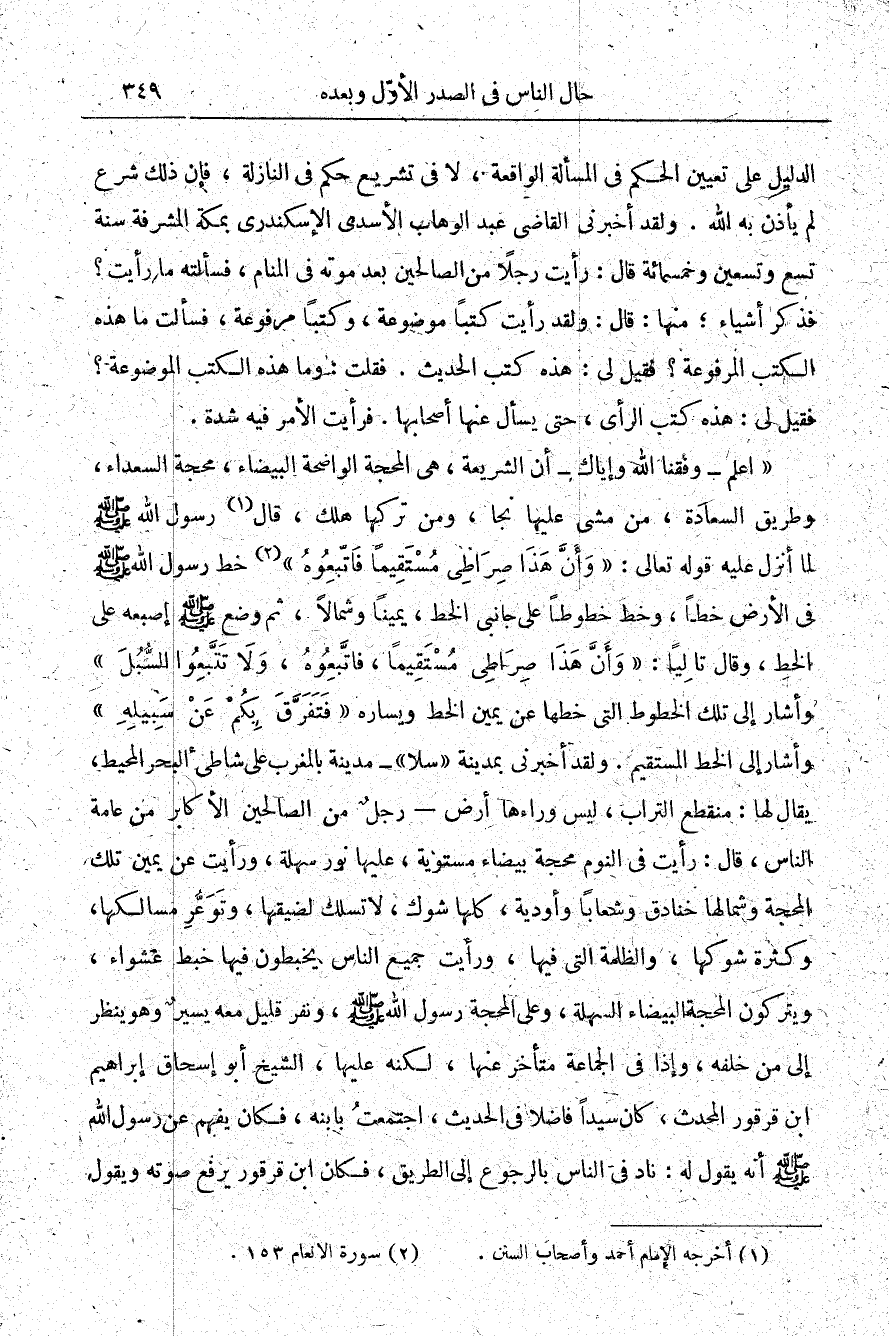 حال الناس فى الصدر الأوّل وبعده ٣٤٩
الدليل على تعيين الحكم فى المسألة الواقعة ، لا فى تشريع حكم فى النازلة ، فإن ذلك شرع
لم يأذن به الله . ولقد أخبرنى القاضى عبد الوهاب الأسدى الإسكندرى بمكة المشرفة سنة
تسع وتسعين وخمسمائة قال : رأيت رجلًا من الصالحين بعد موته فى المنام ، فسألته ما رأيت ؟
فذكر أشياء ؛ منها : قال : ولقد رأيت كتباً موضوعة ، وكتباً مرفوعة ، فسألت ما هذه
الكتب المرفوعة ؟ فقيل لى : هذه كتب الحديث . فقلت : وما هذه الكتب الموضوعة ؟
فقيل لى : هذه كتب الرأى ، حتى يسأل عنها أصحابها . فرأيت الأمر فيه شدة .
« اعلم ــ وفقنا الله وإياك ــ أن الشريعة ، هى المحجة الواضحة البيضاء ، محجة السعداء ،
وطريق السعادة ، من مشى عليها نجا ، ومن تركها هلك ، قال(١) رسول الله ﷺ
لما أنزل عليه قوله تعالى : « وَأَنَّ هَذَا صِرَاطِى مُسْتَقِيماً فَاتَّبِعُوهُ »(٢) خط رسول الله ﷺ
فى الأرض خطاً ، وخط خطوطاً على جانبى الخط ، يميناً وشمالاً ، ثم وضع ﷺ إصبعه على
الخط ، وقال تالياً : « وَأَنَّ هَذَا صِرَاطِى مُسْتَقِيماً ، فاتَّبِعُوهُ ، وَلَا تَتَّبِعُوا السُّبُلَ »
وأشار إلى تلك الخطوط التى خطها عن يمين الخط ويساره « فَتَفَرَّقَ بِكُمْ عَنْ سَبِيلِهِ »
وأشار إلى الخط المستقيم . ولقد أخبرنى بمدينة «سلا» ــ مدينة بالمغرب على شاطئ البحر المحيط،
يقال لها : منقطع التراب ، ليس وراءها أرض — رجلٌ من الصالحين الأكابر من عامة
الناس ، قال : رأيت فى النوم محجة بيضاء مستوية ، عليها نور سهلة ، ورأيت عن يمين تلك
المحجة وشمالها خنادق وشعابًا وأودية ، كلها شوك ، لا تسلك لضيقها ، وتَوَعُّرِ مسالكها،
وكثرة شوكها ، والظلمة التى فيها ، ورأيت جميع الناس يخبطون فيها خبط عشواء ،
ويتركون المحجة البيضاء السهلة ، وعلى المحجة رسول الله ﷺ ، ونفر قليل معه يسيرٌ وهو ينظر
إلى من خلفه ، وإذا فى الجماعة متأخر عنها ، لكنه عليها ، الشيخ أبو إسحاق إبراهيم
ابن قرقور المحدث ، كان سيداً فاضلا فى الحديث ، اجتمعتُ بابنه ، فكان يفهم عن رسول الله
ﷺ أنه يقول له : ناد فى الناس بالرجوع إلى الطريق ، فكان ابن قرقور يرفع صوته ويقول
(١) أخرجه الإمام أحمد وأصحاب السنن . (٢) سورة الانعام ١٥٣ .